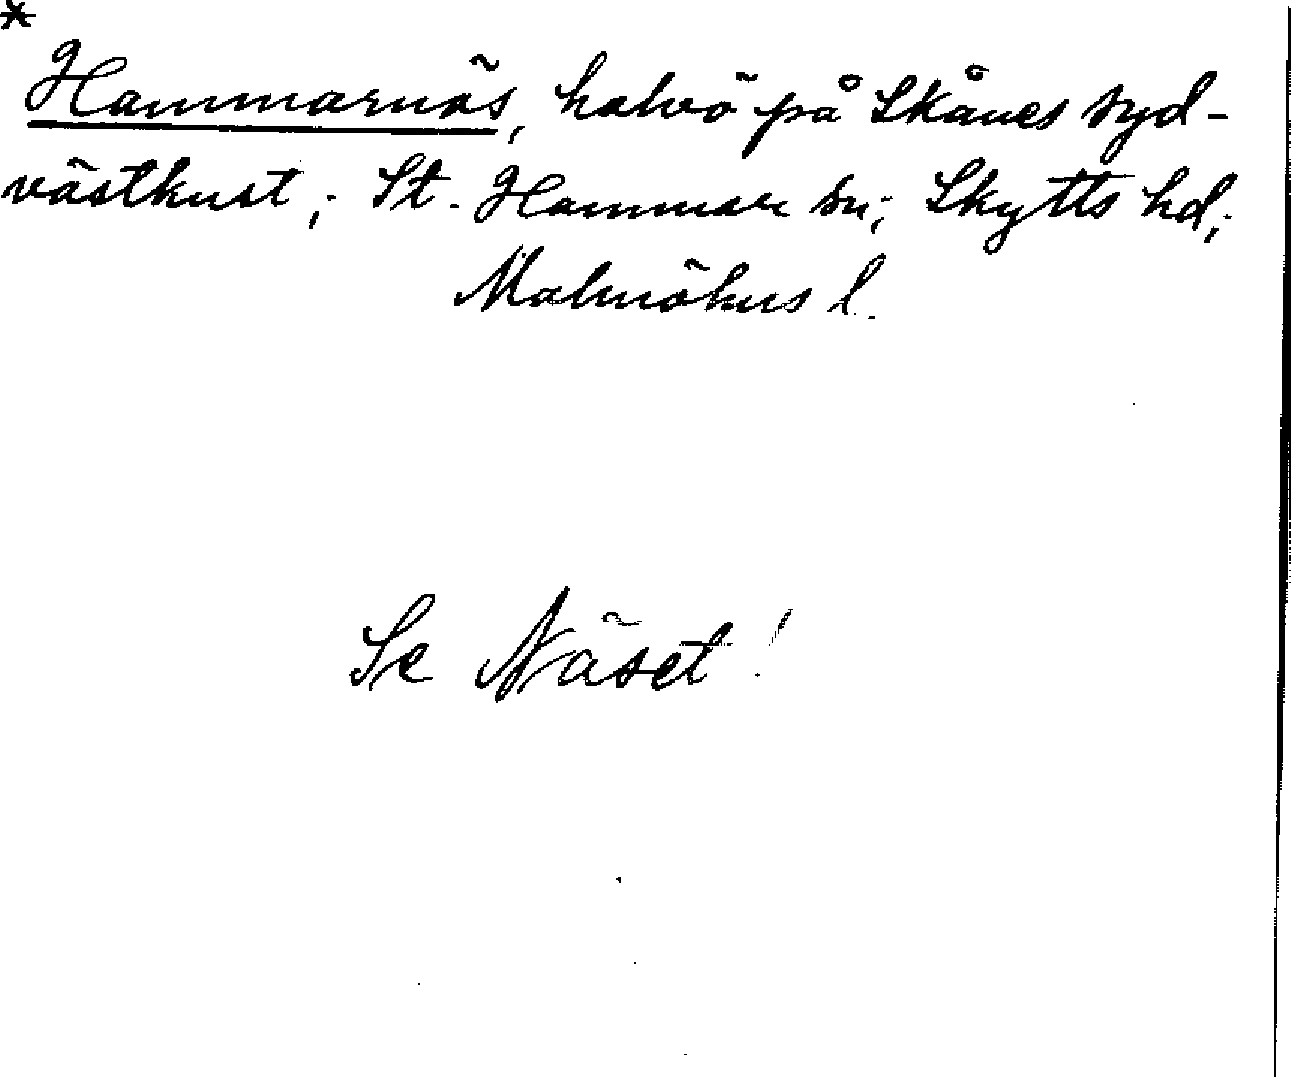 *
Hammarnäs, halvö på Skånes syd-
västkust; St. Hammar sn; Skytts hd;
Malmöhus l.
Se Näset!